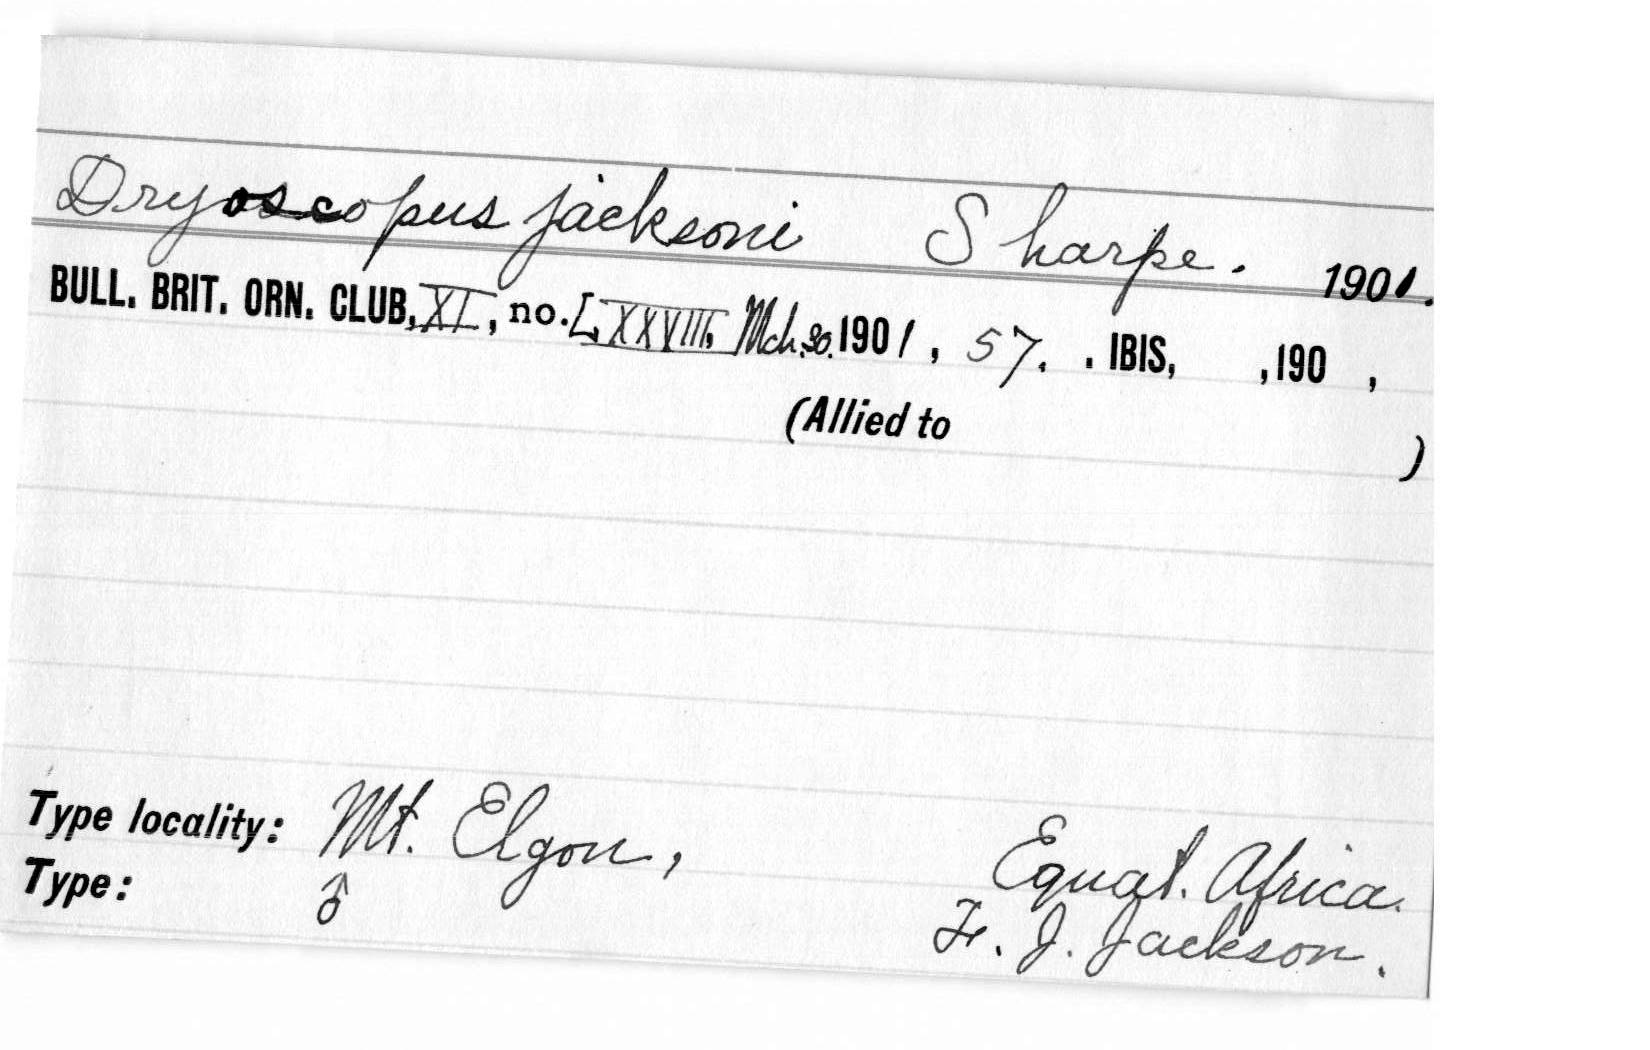 Dryoscopus jacksoni Sharpe. 1901.
BULL. BRIT. ORN. CLUB, XI, no. LXXVIII, Mch. 30. 1901, 57. . IBIS, ,190 ,
(Allied to )
Type locality: Mt. Elgon, Equat. Africa.
Type: ♂ F. J. Jackson.